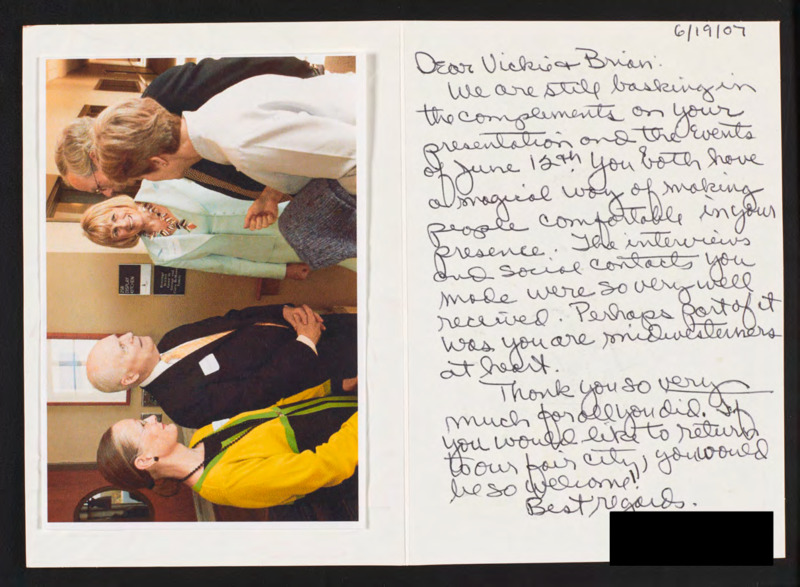 6/19/07
Dear Vickie & Brian:
We are still basking in
the complements on your
presentation and the Events
of June 12th. You both have
a magical way of making
people comfortable in your
presence. The interviews
and social contacts you
made were so very well
received. Perhaps part of it
was you are midwesterners
at heart.
Thank you so very
much for all you did. If
you would like to return
to our fair city, you would
be so welcome!
Best regards.